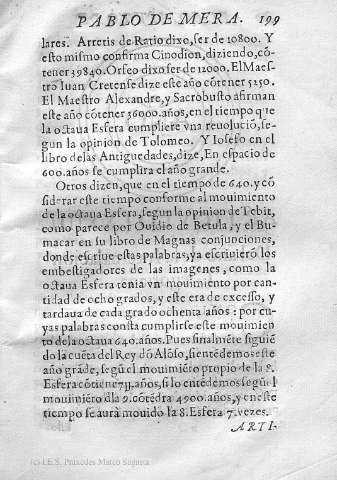 PABLO DE MERA. 199
lares. Arretis de Ratio dixo, ser de 10800. Y
esto mismo confirma Cinodion, diziendo, cō-
tener 39840. Orfeo dixo ser de 12000. El Maes-
tro Iuan Cretense dize este año cōtener 5250.
El Maestro Alexandre, y Sacrobusto afirman
este año cōtener 36000. años, en el tiempo que
la octaua Esfera cumpliere vna reuolució, se-
gun la opinion de Tolomeo. Y Iosefo en el
libro delas Antiguedades, dize, En espacio de
600. años se cumplira el año grande.
Otros dizen, que en el tiempo de 640. y cō
siderar este tiempo conforme al mouimiento
de la octaua Esfera, segun la opinion de Tebit,
como parece por Ouidio de Betula, y el Bu-
macar en su libro de Magnas conjunciones,
donde escriue estas palabras, ya escriuierō los
embestigadores de las imagenes, como la
octaua Esfera tenia vn mouimiento por can-
tidad de ocho grados, y este era de excesso, y
tardaua de cada grado ochenta años: por cu-
yas palabras consta cumplirse este mouimien-
to dela octaua 640. años. Pues finalmēte siguiē
do la cuēta del Rey dō Alōso, si entēdemos este
año grāde, segū el mouimiēto propio de la 8.
Esfera cōtiene años, si lo entēdemos segū el
mouimiēto dla 9. cōtēdra 4900. años, y en este
tiempo se aura mouido la 8. Esfera 7. vezes.
ARTI-
(c) I.E.S. Práxedes Mateo Sagasta